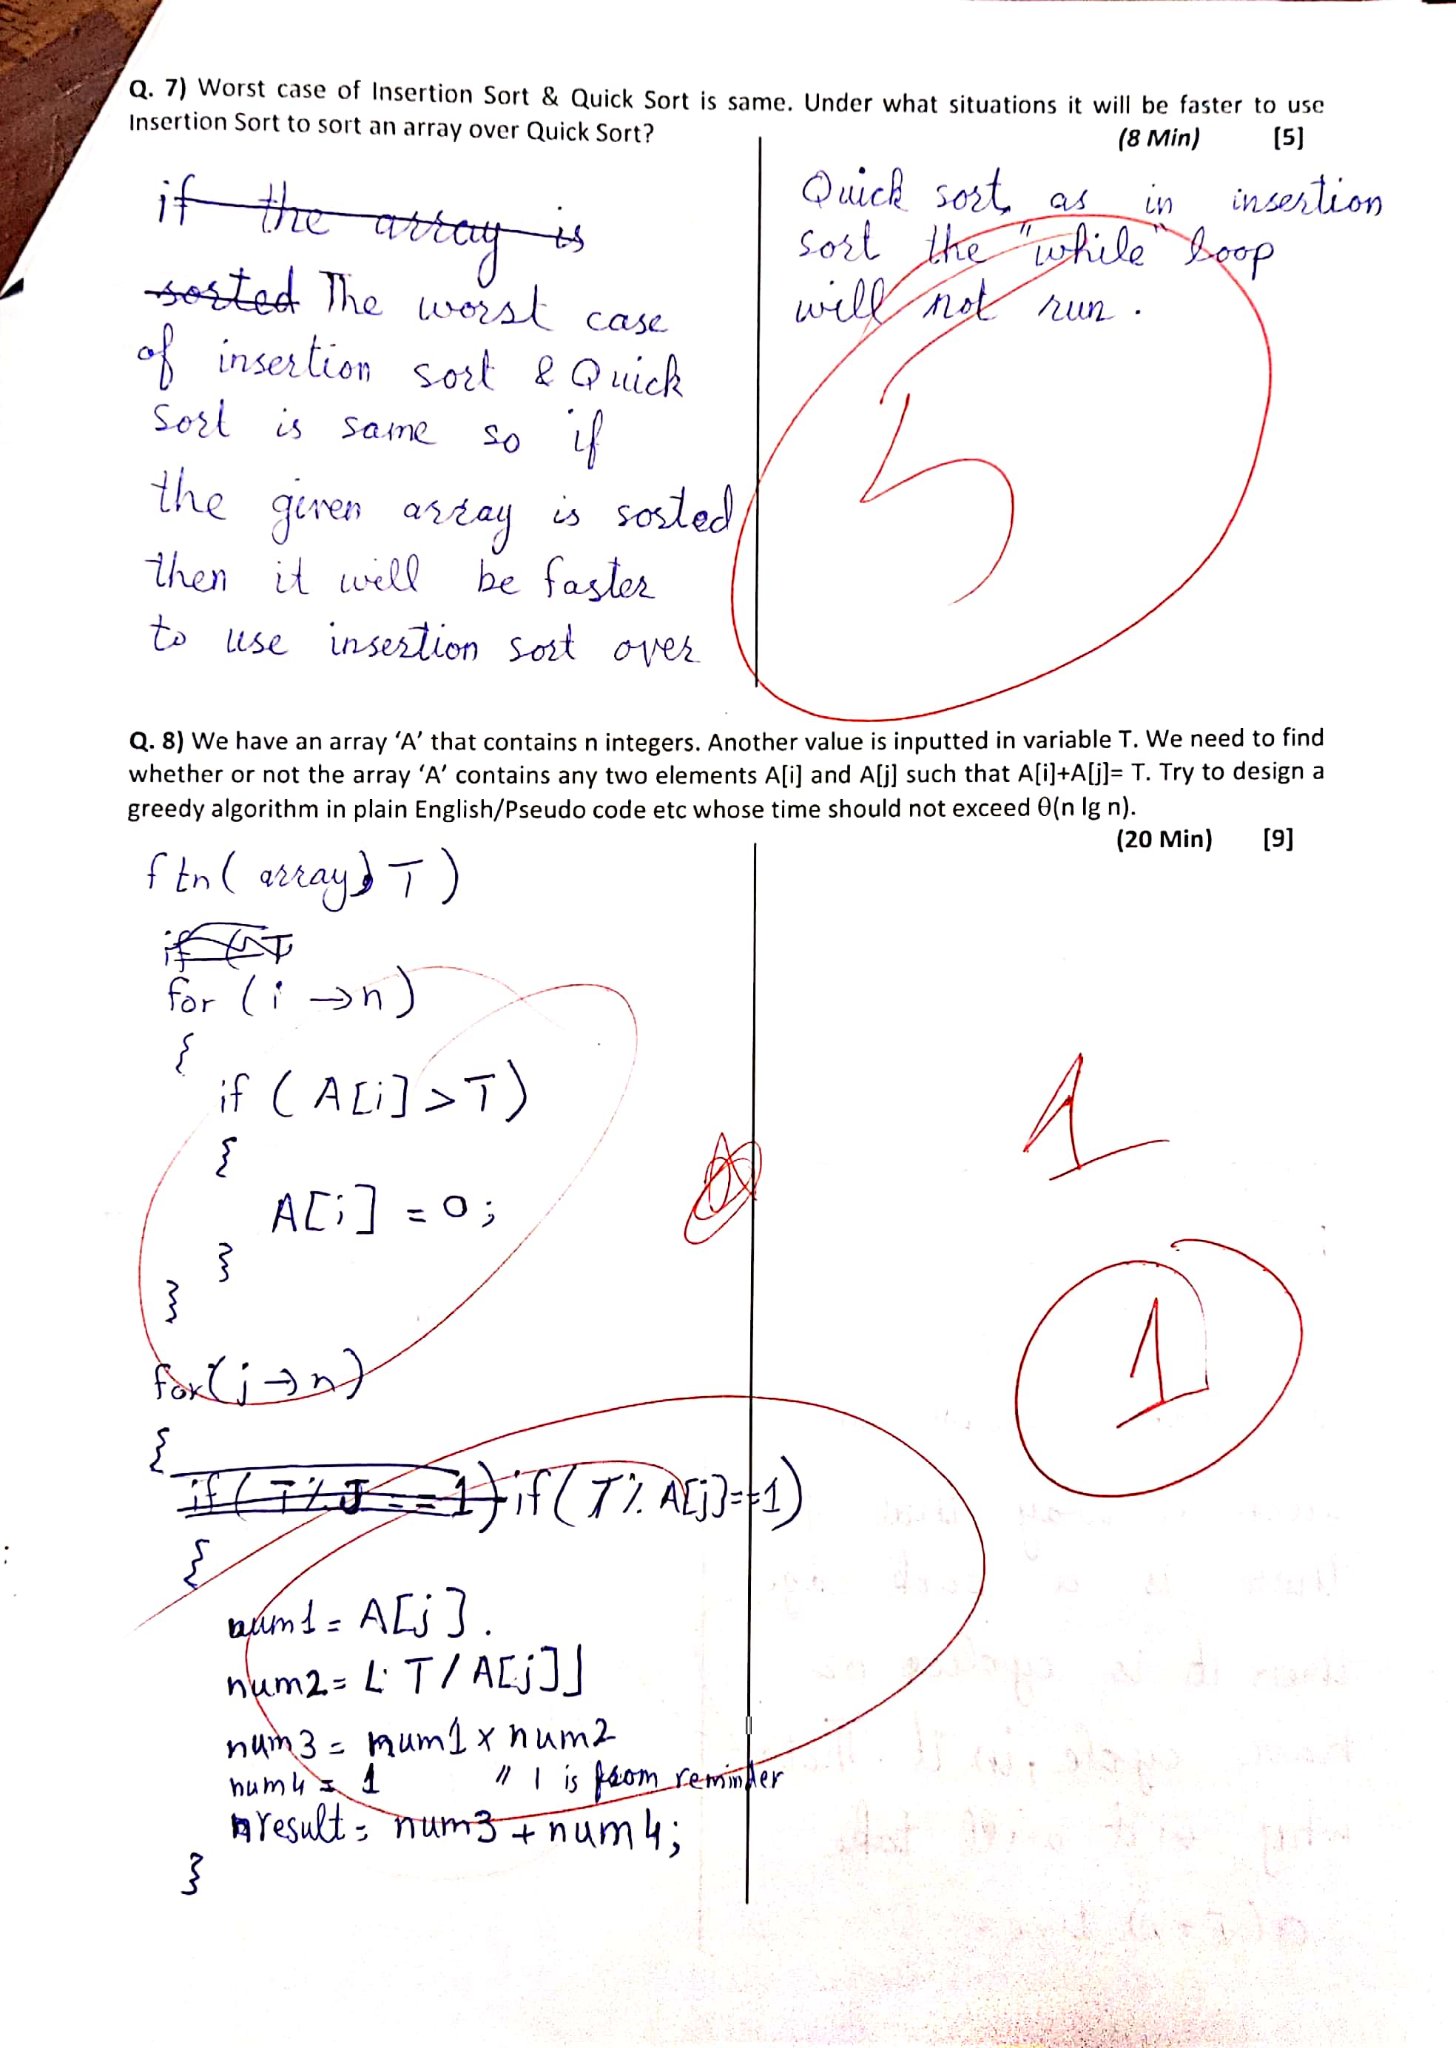 Q. 7) Worst case of Insertion Sort & Quick Sort is same. Under what situations it will be faster to use
Insertion Sort to sort an array over Quick Sort?
(8 Min) [5]
if the array is
sorted The worst case
of insertion sort & Quick
Sort is same so if
the given array is sorted
then it will be faster
to use insertion sort over
Quick sort, as in insertion
sort the "while" loop
will not run.
5
Q. 8) We have an array 'A' that contains n integers. Another value is inputted in variable T. We need to find
whether or not the array 'A' contains any two elements A[i] and A[j] such that A[i]+A[j]= T. Try to design a
greedy algorithm in plain English/Pseudo code etc whose time should not exceed θ(n lg n).
(20 Min) [9]
ftn( array, T )
if (T
for (i →n)
{
if ( A[i] >T)
{
A[i] = 0;
}
}
for(j→n)
{
if ( T % J == 1) if( T % A[j]==1)
{
num1 = A[j].
num2= ⌊ T / A[j]⌋
num3 = num1 x num2
num4 = 1 // 1 is from reminder
result = num3 + num4;
}
1
1